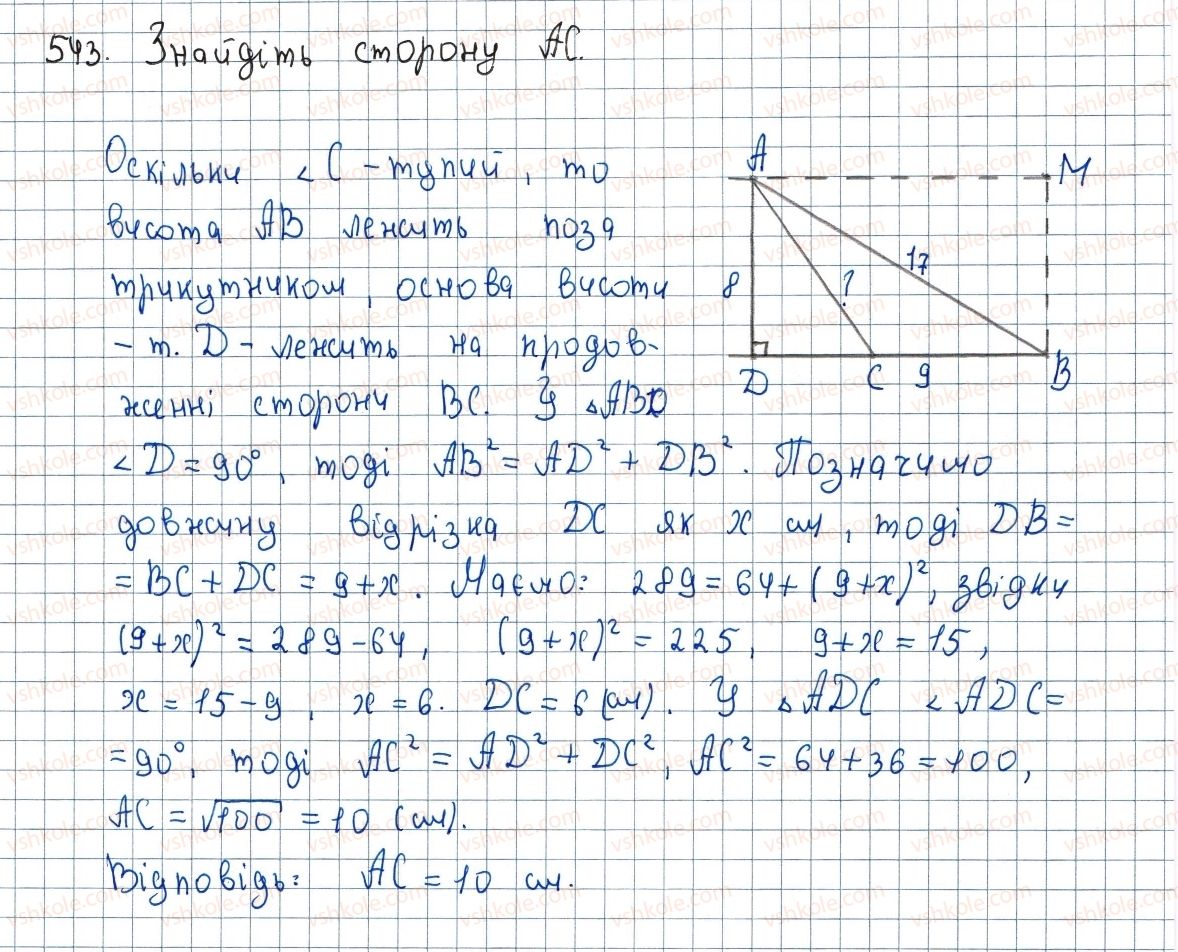 543. Знайдіть сторону AC.
Оскільки ∠C - тупий, то
висота AB лежить поза
трикутником, основа висоти
- т. D - лежить на продов-
женні сторони BC. У △ABD
∠D = 90°, тоді AB² = AD² + DB². Позначимо
довжину відрізка DC як x см, тоді DB =
= BC + DC = 9 + x. Маємо: 289 = 64 + (9 + x)², звідки
(9 + x)² = 289 - 64, (9 + x)² = 225, 9 + x = 15,
x = 15 - 9, x = 6. DC = 6 (см). У △ADC ∠ADC =
= 90°, тоді AC² = AD² + DC², AC² = 64 + 36 = 100,
AC = √100 = 10 (см).
Відповідь: AC = 10 см.
A
M
17
8
?
D
C
9
B
vshkole.com